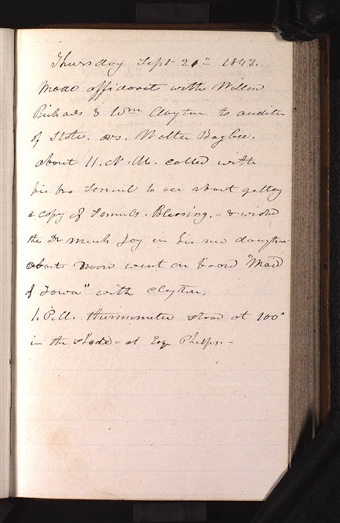 Thursday Sept 21st 1843.
Made affidavit with Willard
Richards & Wm Clayton. to auditor
of State. vs. Walter Bagbee.
about 11. A. M. called with
his bro Samuel to see about getting
a copy of Samuels. Blessing. - & wished
the Dr much Joy in his new daughter
about noon went on board "Maid
of Iowa" with Clayton.
1. P.M. thermometer stood at 100°
in the shade - at Esqr Phelps. -